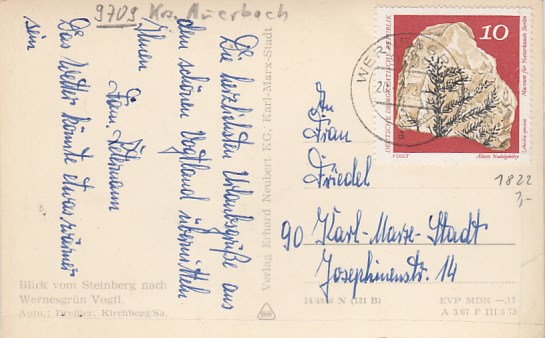 9709 Krs. Auerbach
Die herzlichsten Urlaubsgrüße aus
dem schönen Vogtland übermitteln
Ihnen
Fam.
Das Wetter könnte etwas wärmer
sein
Blick vom Steinberg nach
Wernesgrün Vogtl.
Aufn.: Dreßler, Kirchberg/Sa.
Verlag Erhard Neubert KG, Karl-Marx-Stadt
DEUTSCHE DEMOKRATISCHE REPUBLIK
10
Museum für Naturkunde Berlin
Lebachia speciosa
VOIGT
Ältestes Nadelgehölz
WER
An
Frau
Friedel
90 Karl-Marx-Stadt
Josephinenstr. 14
1822
3,-
14/4856 N (121 B)
EVP MDN —,15
A 3/67 F III 6 73